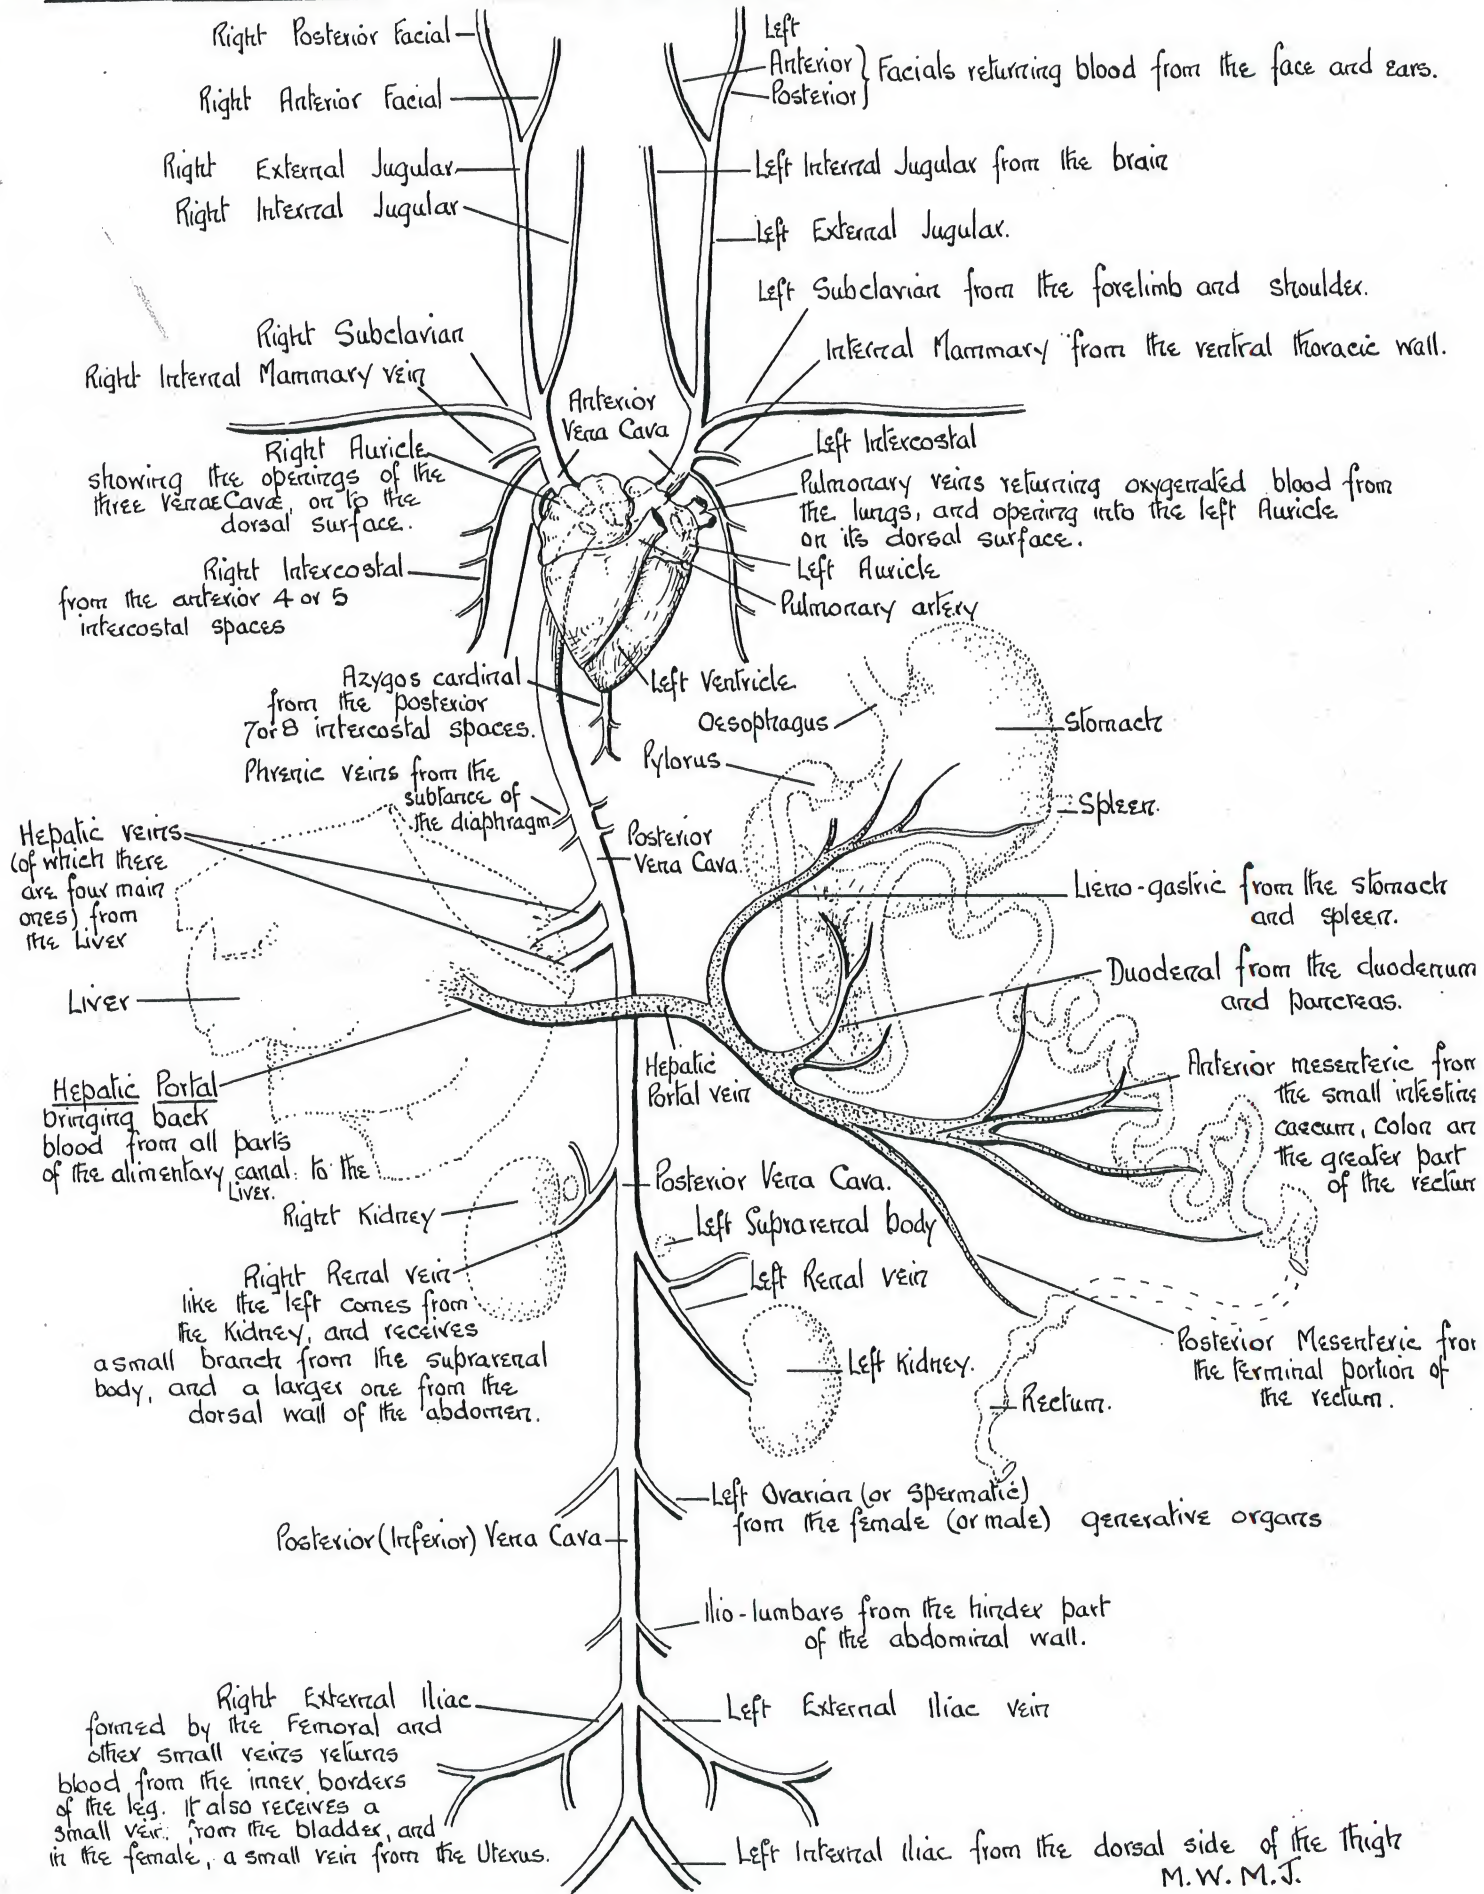 Right Posterior Facial
Left
Anterior } Facials returning blood from the face and ears.
Posterior
Right Anterior Facial
Right External Jugular
Left Internal Jugular from the brain
Right Internal Jugular
Left External Jugular.
Left Subclavian from the forelimb and shoulder.
Right Subclavian
Internal Mammary from the ventral thoracic wall.
Right Internal Mammary vein
Anterior
Vena Cava
Right Auricle
showing the openings of the
three Venae Cavæ, on to the
dorsal surface.
Left Intercostal
Pulmonary veins returning oxygenated blood from
the lungs, and opening into the left Auricle
on its dorsal surface.
Right Intercostal
from the anterior 4 or 5
intercostal spaces
Left Auricle
Pulmonary artery
Azygos cardinal
from the posterior
7 or 8 intercostal spaces.
Left Ventricle
Oesophagus
Stomach
Pylorus
Phrenic veins from the
subtance of
the diaphragm
Spleen.
Hepatic veins
(of which there
are four main
ones) from
the Liver
Posterior
Vena Cava.
Lieno-gastric from the stomach
and spleen.
Liver
Duodenal from the duodenum
and pancreas.
Hepatic
Portal vein
Hepatic Portal
bringing back
blood from all parts
of the alimentary canal to the
Liver.
Anterior mesenteric from
the small intestine
caecum, colon an
the greater part
of the rectum
Posterior Vena Cava.
Right Kidney
Left Suprarenal body
Right Renal vein
like the left comes from
the Kidney, and receives
a small branch from the suprarenal
body, and a larger one from the
dorsal wall of the abdomen.
Left Renal vein
Left Kidney.
Posterior Mesenteric fror
the terminal portion of
the rectum.
Rectum.
Left Ovarian (or Spermatic)
from the female (or male) generative organs
Posterior (Inferior) Vena Cava
Ilio-lumbars from the hinder part
of the abdominal wall.
Right External Iliac
formed by the Femoral and
other small veins returns
blood from the inner borders
of the leg. It also receives a
small vein from the bladder, and
in the female, a small vein from the Uterus.
Left External Iliac vein
Left Internal Iliac from the dorsal side of the Thigh
M.W.M.J.